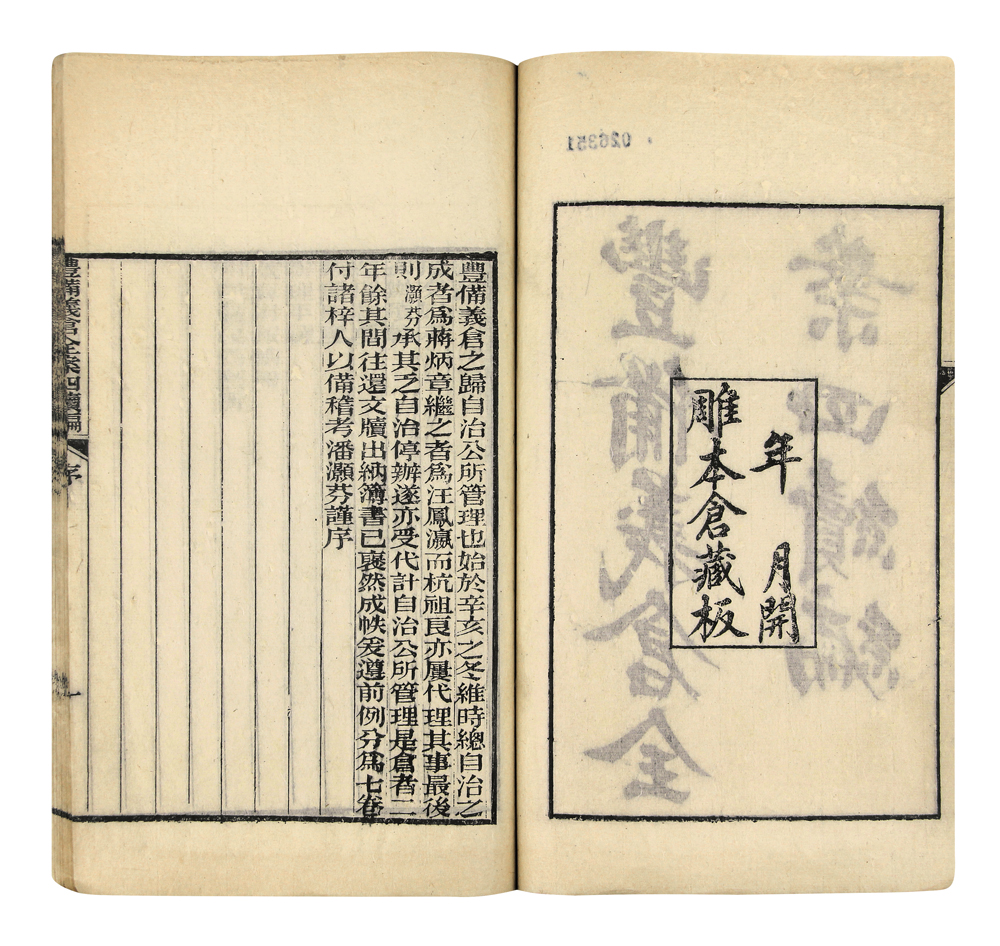 026351
豐備義倉全
案四續編
年 月開
雕本倉藏板
豐備義倉之歸自治公所管理也始於辛亥之冬維時總自治之
成者爲蔣炳章繼之者爲汪鳳瀛而杭祖良亦屢代理其事最後
則灝芬承其乏自治停辦遂亦受代計自治公所管理是倉者二
年餘其間往還文牘出納簿書已裒然成帙爰遵前例分爲七卷
付諸梓人以備稽考潘灝芬謹序
豐備義倉全案四續編 序 一